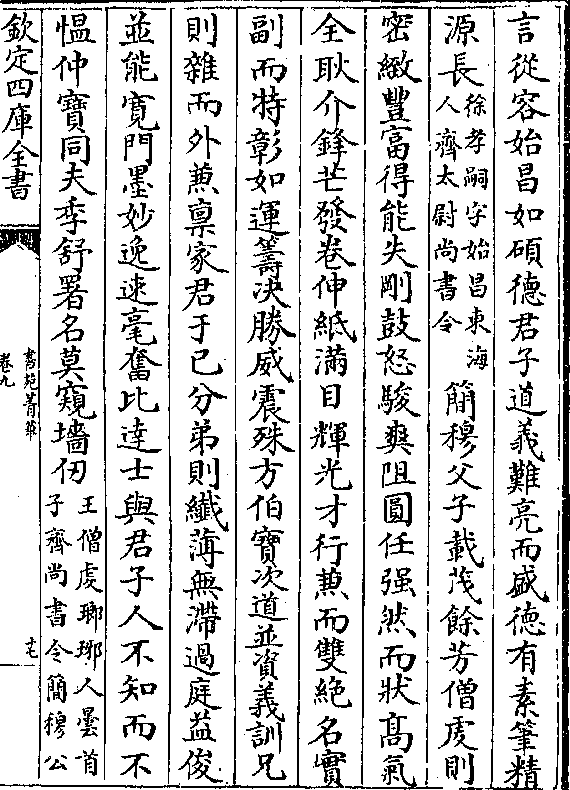 言從容始昌如碩德君子道義難亮而盛德有素筆精
源長徐孝嗣字始昌東海人齊太尉尚書令簡穆父子載茂餘芳僧䖍則
密緻豐富得能失剛鼓怒駿爽阻圓任强然而狀髙氣
全耿介鋒芒發卷伸紙滿目輝光才行兼而雙絶名實
副而特彰如運籌決勝威震殊方伯寶次道並資義訓兄
則雜而外兼禀家君于已分弟則纖薄無滯過庭益俊
並能寛門墨妙逸速毫奮比達士與君子人不知而不
愠仲寶同夫季舒署名莫窺墻仞王僧䖍瑯琊人曇首子齊尚書令簡穆公
欽定四庫全書
書苑菁華
卷九
十七